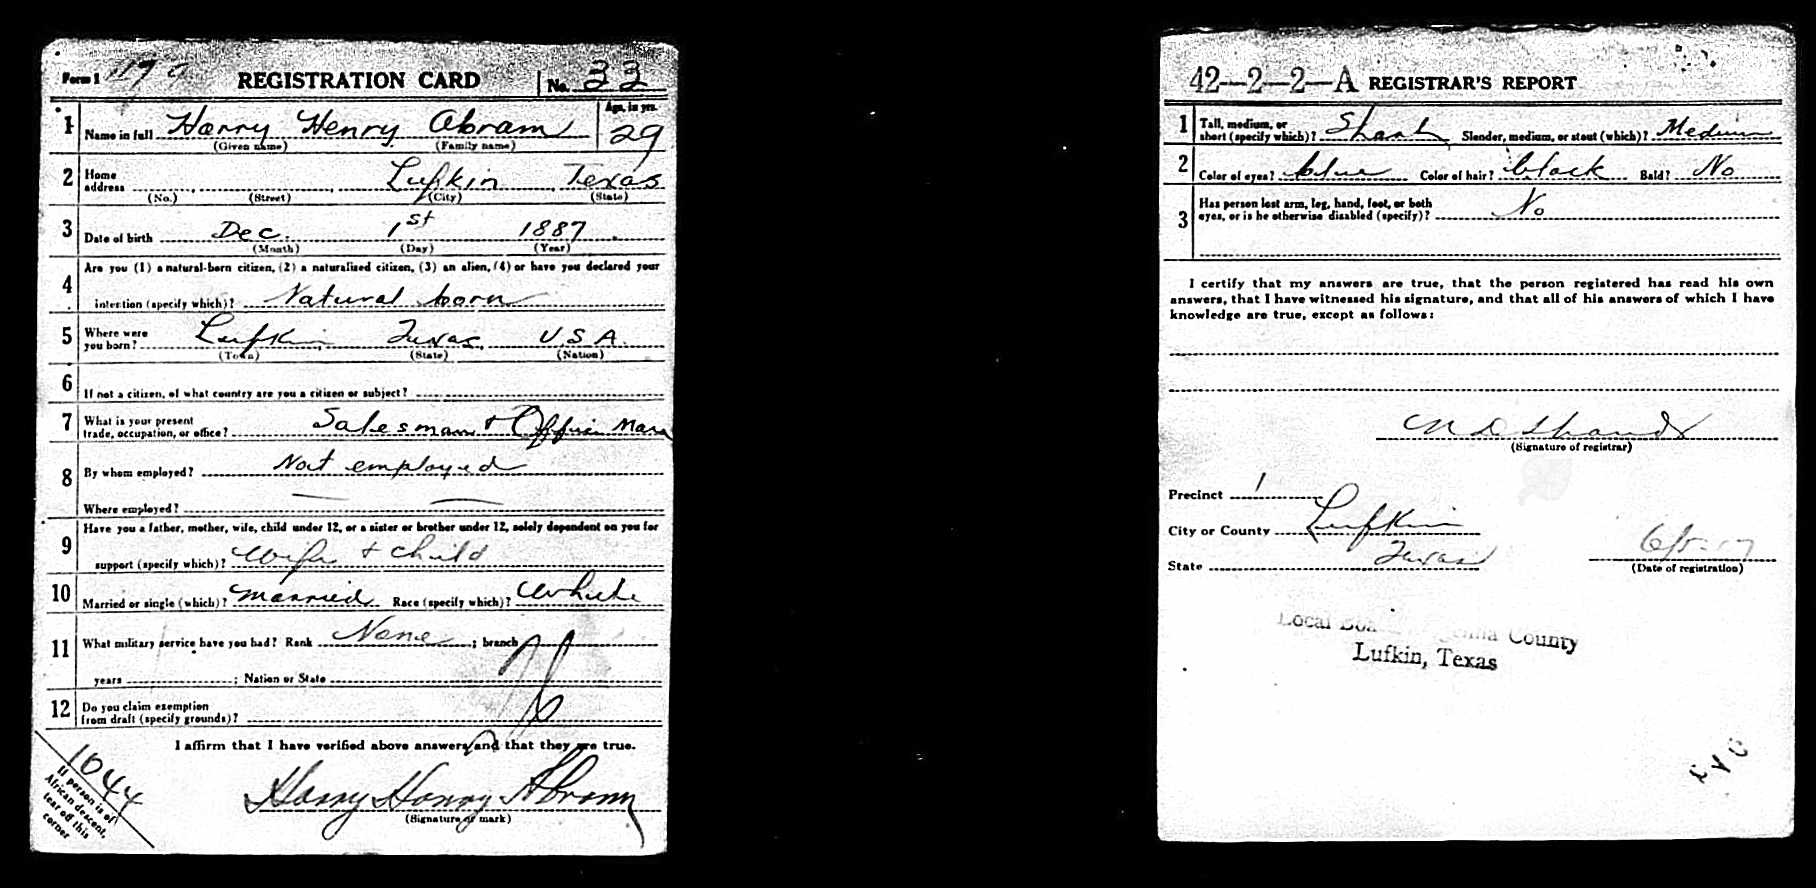 Form 1
REGISTRATION CARD No. 33
1 Name in full Harry Henry Abram Age, in yrs. 29
(Given name) (Family name)
2 Home address Lufkin Texas
(No.) (Street) (City) (State)
3 Date of birth Dec. 1st 1887
(Month) (Day) (Year)
4 Are you (1) a natural-born citizen, (2) a naturalized citizen, (3) an alien, (4) or have you declared your
intention (specify which)? Natural born
5 Where were you born? Lufkin, Texas, U.S.A.
(Town) (State) (Nation)
6 If not a citizen, of what country are you a citizen or subject?
7 What is your present
trade, occupation, or office? Salesman + Office Man
8 By whom employed? Not employed
Where employed?
9 Have you a father, mother, wife, child under 12, or a sister or brother under 12, solely dependent on you for
support (specify which)? Wife + child
10 Married or single (which)? Married Race (specify which)? White
11 What military service have you had? Rank None ; branch
years ; Nation or State
12 Do you claim exemption
from draft (specify grounds)?
I affirm that I have verified above answers and that they are true.
Harry Henry Abram
(Signature or mark)
1044
If person is of
African descent,
tear off this
corner
42—2—2—A REGISTRAR'S REPORT
1 Tall, medium, or
short (specify which)? Short Slender, medium, or stout (which)? Medium
2 Color of eyes? blue Color of hair? black Bald? No
3 Has person lost arm, leg, hand, foot, or both
eyes, or is he otherwise disabled (specify)? No
I certify that my answers are true, that the person registered has read his own
answers, that I have witnessed his signature, and that all of his answers of which I have
knowledge are true, except as follows:
(Signature of registrar)
Precinct 1
City or County Lufkin
State Texas 6/5-17
(Date of registration)
Local County
Lufkin, Texas